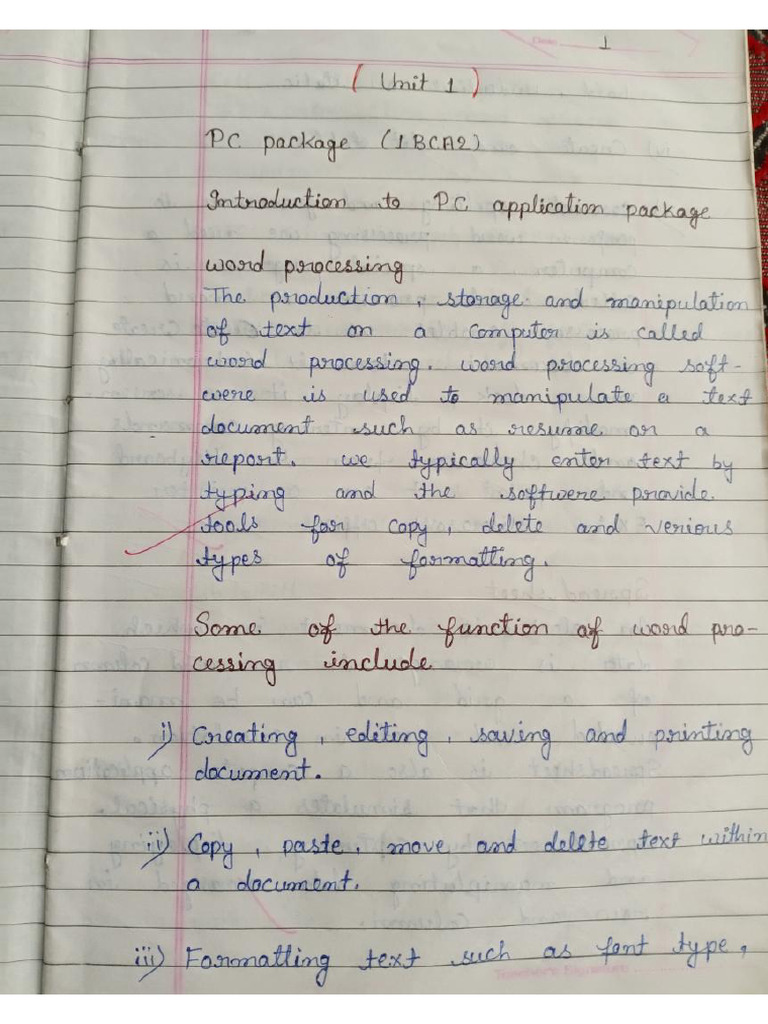 1
(Unit 1)
PC package (1BCA2)
Introduction to PC application package
word processing
The production, storage and manipulation
of text on a computer is called
word processing. word processing soft-
were is used to manipulate a text
document such as resume or a
report. we typically enter text by
typing and the softwere provide.
tools for copy, delete and verious
types of formatting.
Some of the function of word pro-
cessing include
i) Creating, editing, saving and printing
document.
ii) Copy, paste, move and delete text within
a document.
iii) Formatting text such as font type,